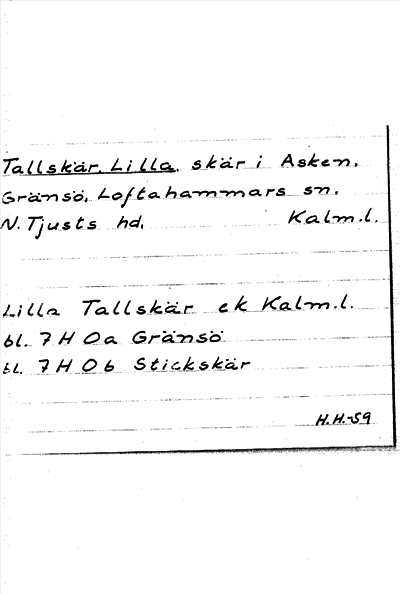 Tallskär, Lilla, skär i Asken,
Gränsö, Loftahammars sn,
N. Tjusts hd, Kalm.l.
Lilla Tallskär ek Kalm.l.
bl. 7 H 0a Gränsö
bl. 7 H 0b Stickskär
H.H.-59